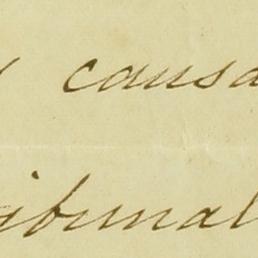 causa
ribunal